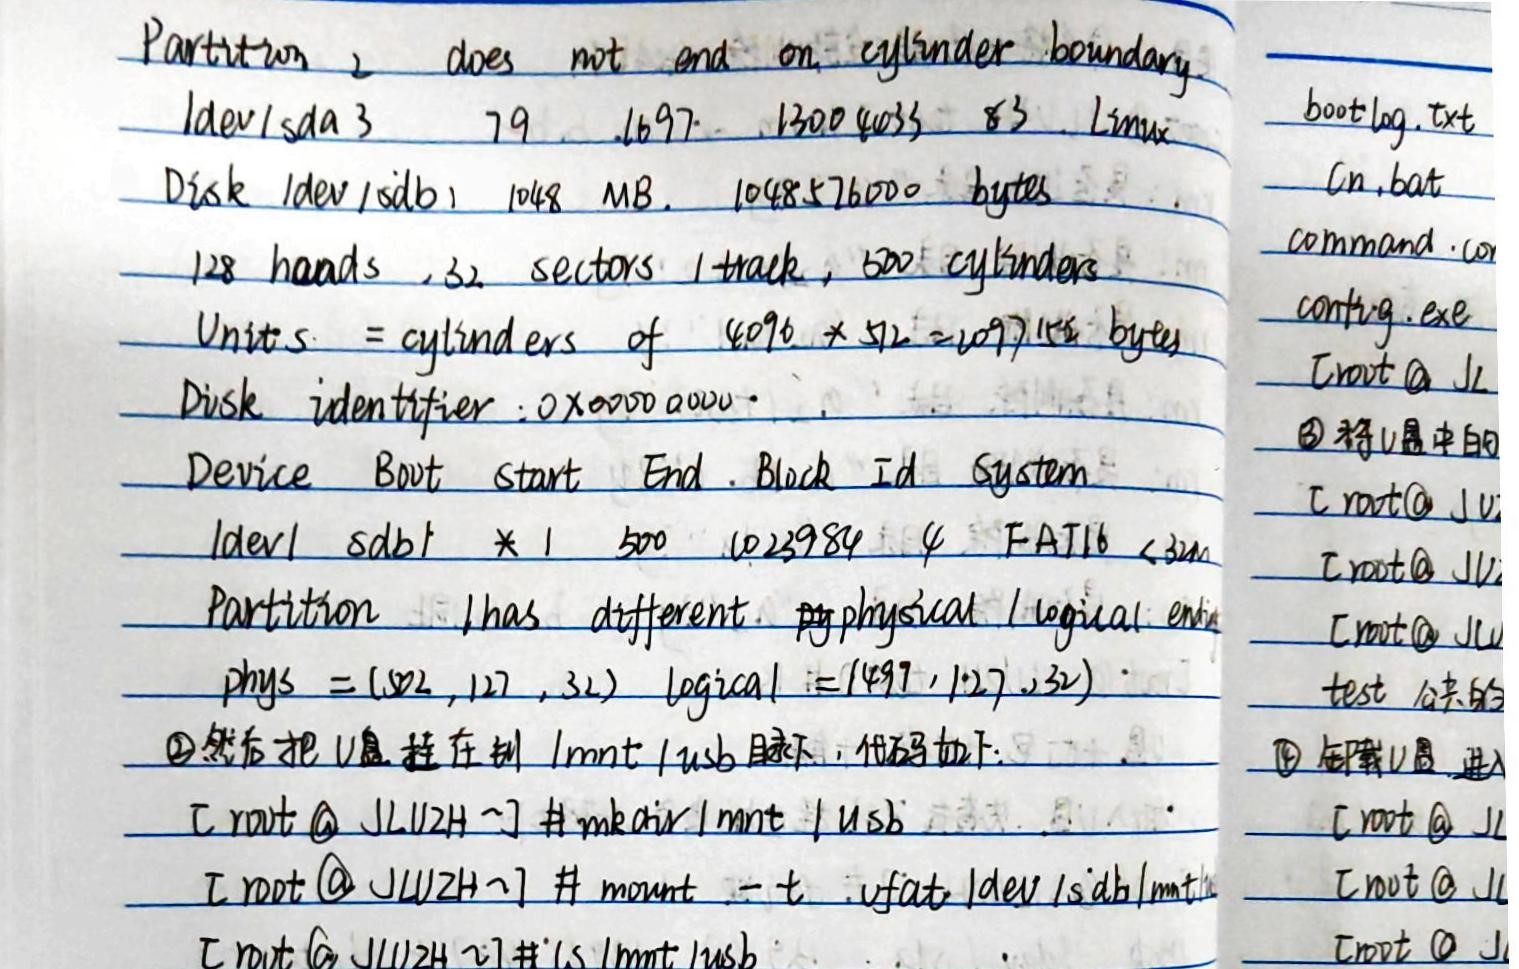 Partition 2 does not end on cylinder boundary.
/dev/sda3 79 1697 13004033 83 Linux
Disk /dev/sdb: 1048 MB. 1048576000 bytes
128 heads, 32 sectors / track, 500 cylinders
Units = cylinders of 4096 * 512 = 2097152 bytes
Disk identifier: 0x00000000.
Device Boot start End Block Id System
/dev/ sdb1 * 1 500 1023984 4 FAT16 <32M
Partition 1 has different physical / logical
phys = (502, 127, 32) logical = (499, 127, 32)
②然后把U盘挂在到 /mnt /usb 目录下, 代码如下:
[root @ JLUZH ~] # mkdir /mnt /usb
[root @ JLUZH ~] # mount -t vfat /dev /sdb /mnt/
[root @ JLUZH ~] # ls /mnt /usb
bootlog.txt
Cn.bat
command.co
config.exe
[root @ JL
③ 将U盘中的
[root @ JLUZ
[root @ JLUZ
[root @ JLU
test 公共的
④ 卸载U盘 进入
[root @ JL
[root @ JL
[root @ JL